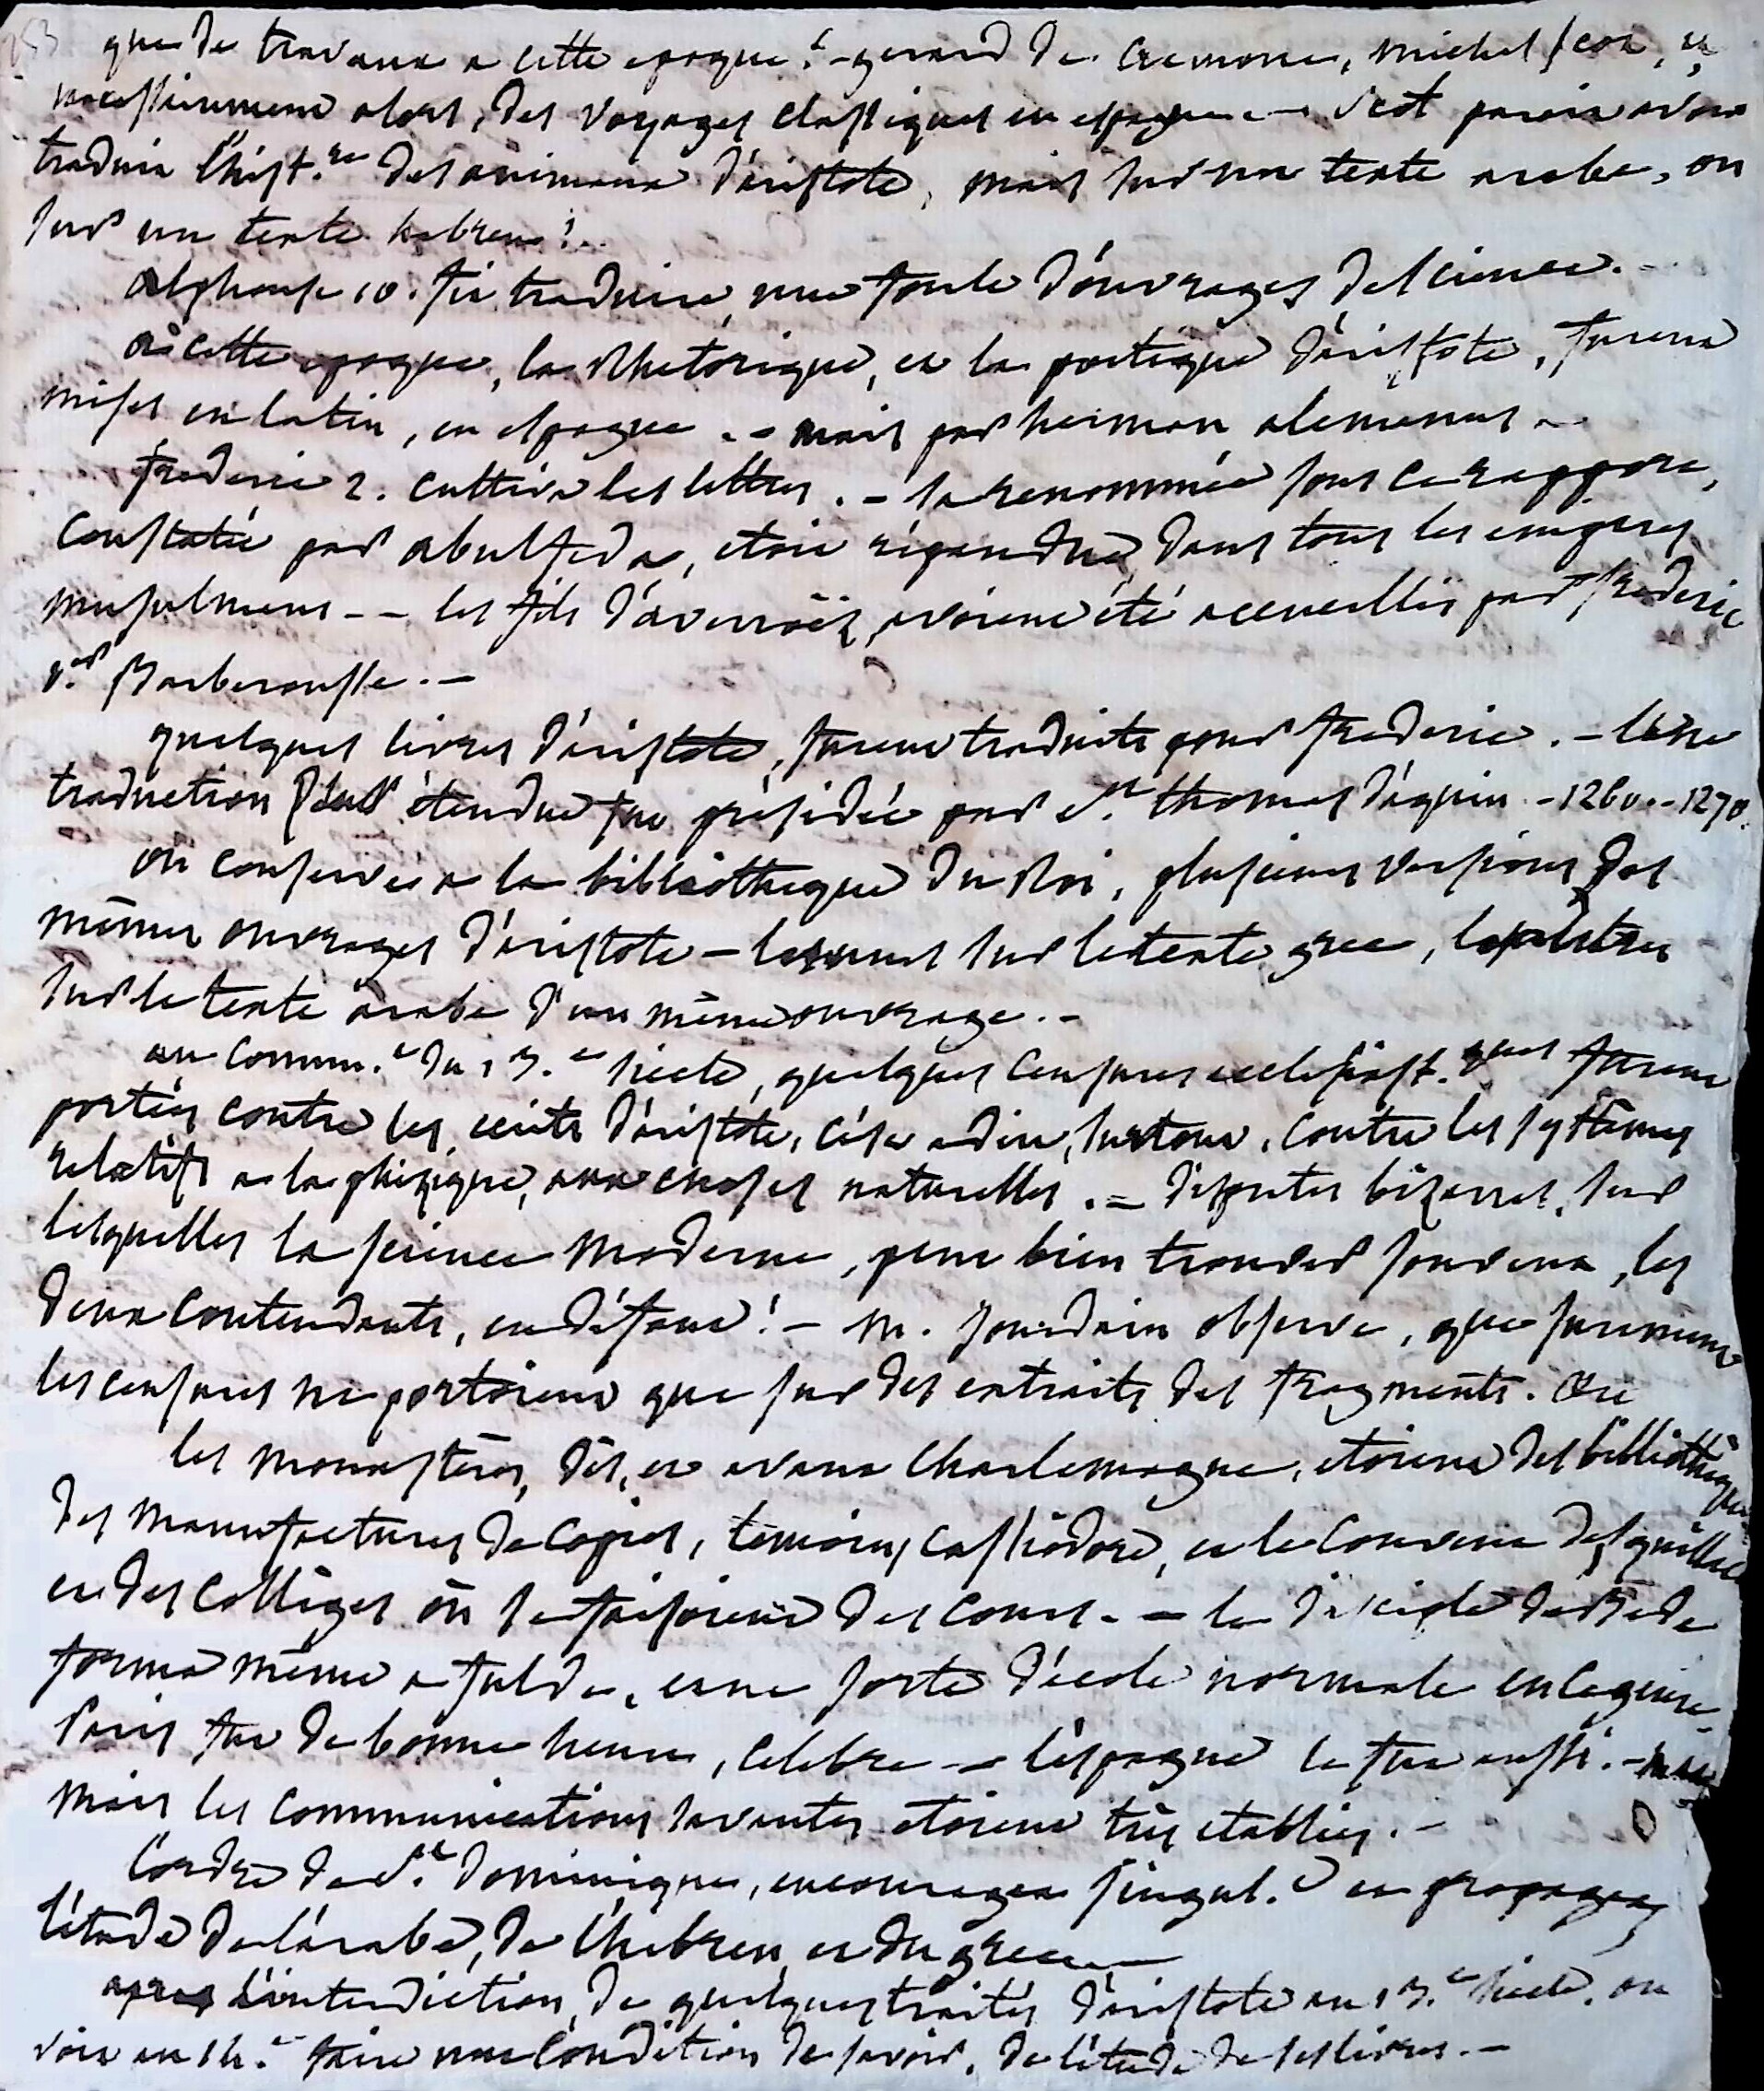 que de travaux a cette epoque ! - gerard de Cremone, michel scot, et
necessairement alors, des voyages classiques en espagne - scot paroit avoir
traduit l'hist.re des animaux d'aristote, mais sur un texte arabe, ou
sur un texte hebreu !..
alphonse 10. fit traduire, une foule d'ouvrages de science. -
a cette epoque, la Rhetorique, et la poetique d'aristote, furent
mises en latin, en espagne . - mais par herman alemanus -
frederic 2. cultiva les lettres . - sa renommée sous ce rapport,
constatée par abulfeda, etoit répandue, dans tous les empires
musulmans - - les fils d'averroëz, avoient été accueillis par frederic
1.er Barberousse . -
quelques livres d'aristote, furent traduits pour frederic . - Une
traduction plus étendue fut présidée par St. thomas d'aquin - 1260 - 1270.
on conserve a la bibliotheque du Roi, plusieurs versions des
mêmes ouvrages d'aristote - les unes sur le texte grec, les autres
sur le texte arabe d'un même ouvrage . -
au comm.t du 13.e siecle, quelques censures ecclesiast.ques furent
portées contre les ecrits d'aristote, c'est a dire, surtout, contre les systêmes
relatifs a la phizique, aux choses naturelles . = disputes bizarres, sur
lesquelles la science moderne, peut bien trouver souvent, les
deux contendants, en défaut ! - m. jourdain observe, que surement
les censures ne portoient que sur des extraits des fragments. &c
les monastères, dès, et avant Charlemagne, etoient des bibliothèques
des manufactures de copies, temoins Cassiodore, et le couvent de squillace
et des collèges où se faisoient des cours - = le disciple de Bede
forma même a fulde, une sorte d'école normale en ce genre -
Paris fut de bonne heure, celebre - l'espagne le fut aussi. -
mais les communications savantes etoient très etablies. -
l'ordre de St. dominique, encouragea singul.t et propagea
l'étude de l'arabe, de l'hebreu et du grec -
apres l'interdiction, de quelques traités d'aristote au 13.e siecle, on
voit au 14.e faire une condition de savoir, de l'étude de ses livres. -